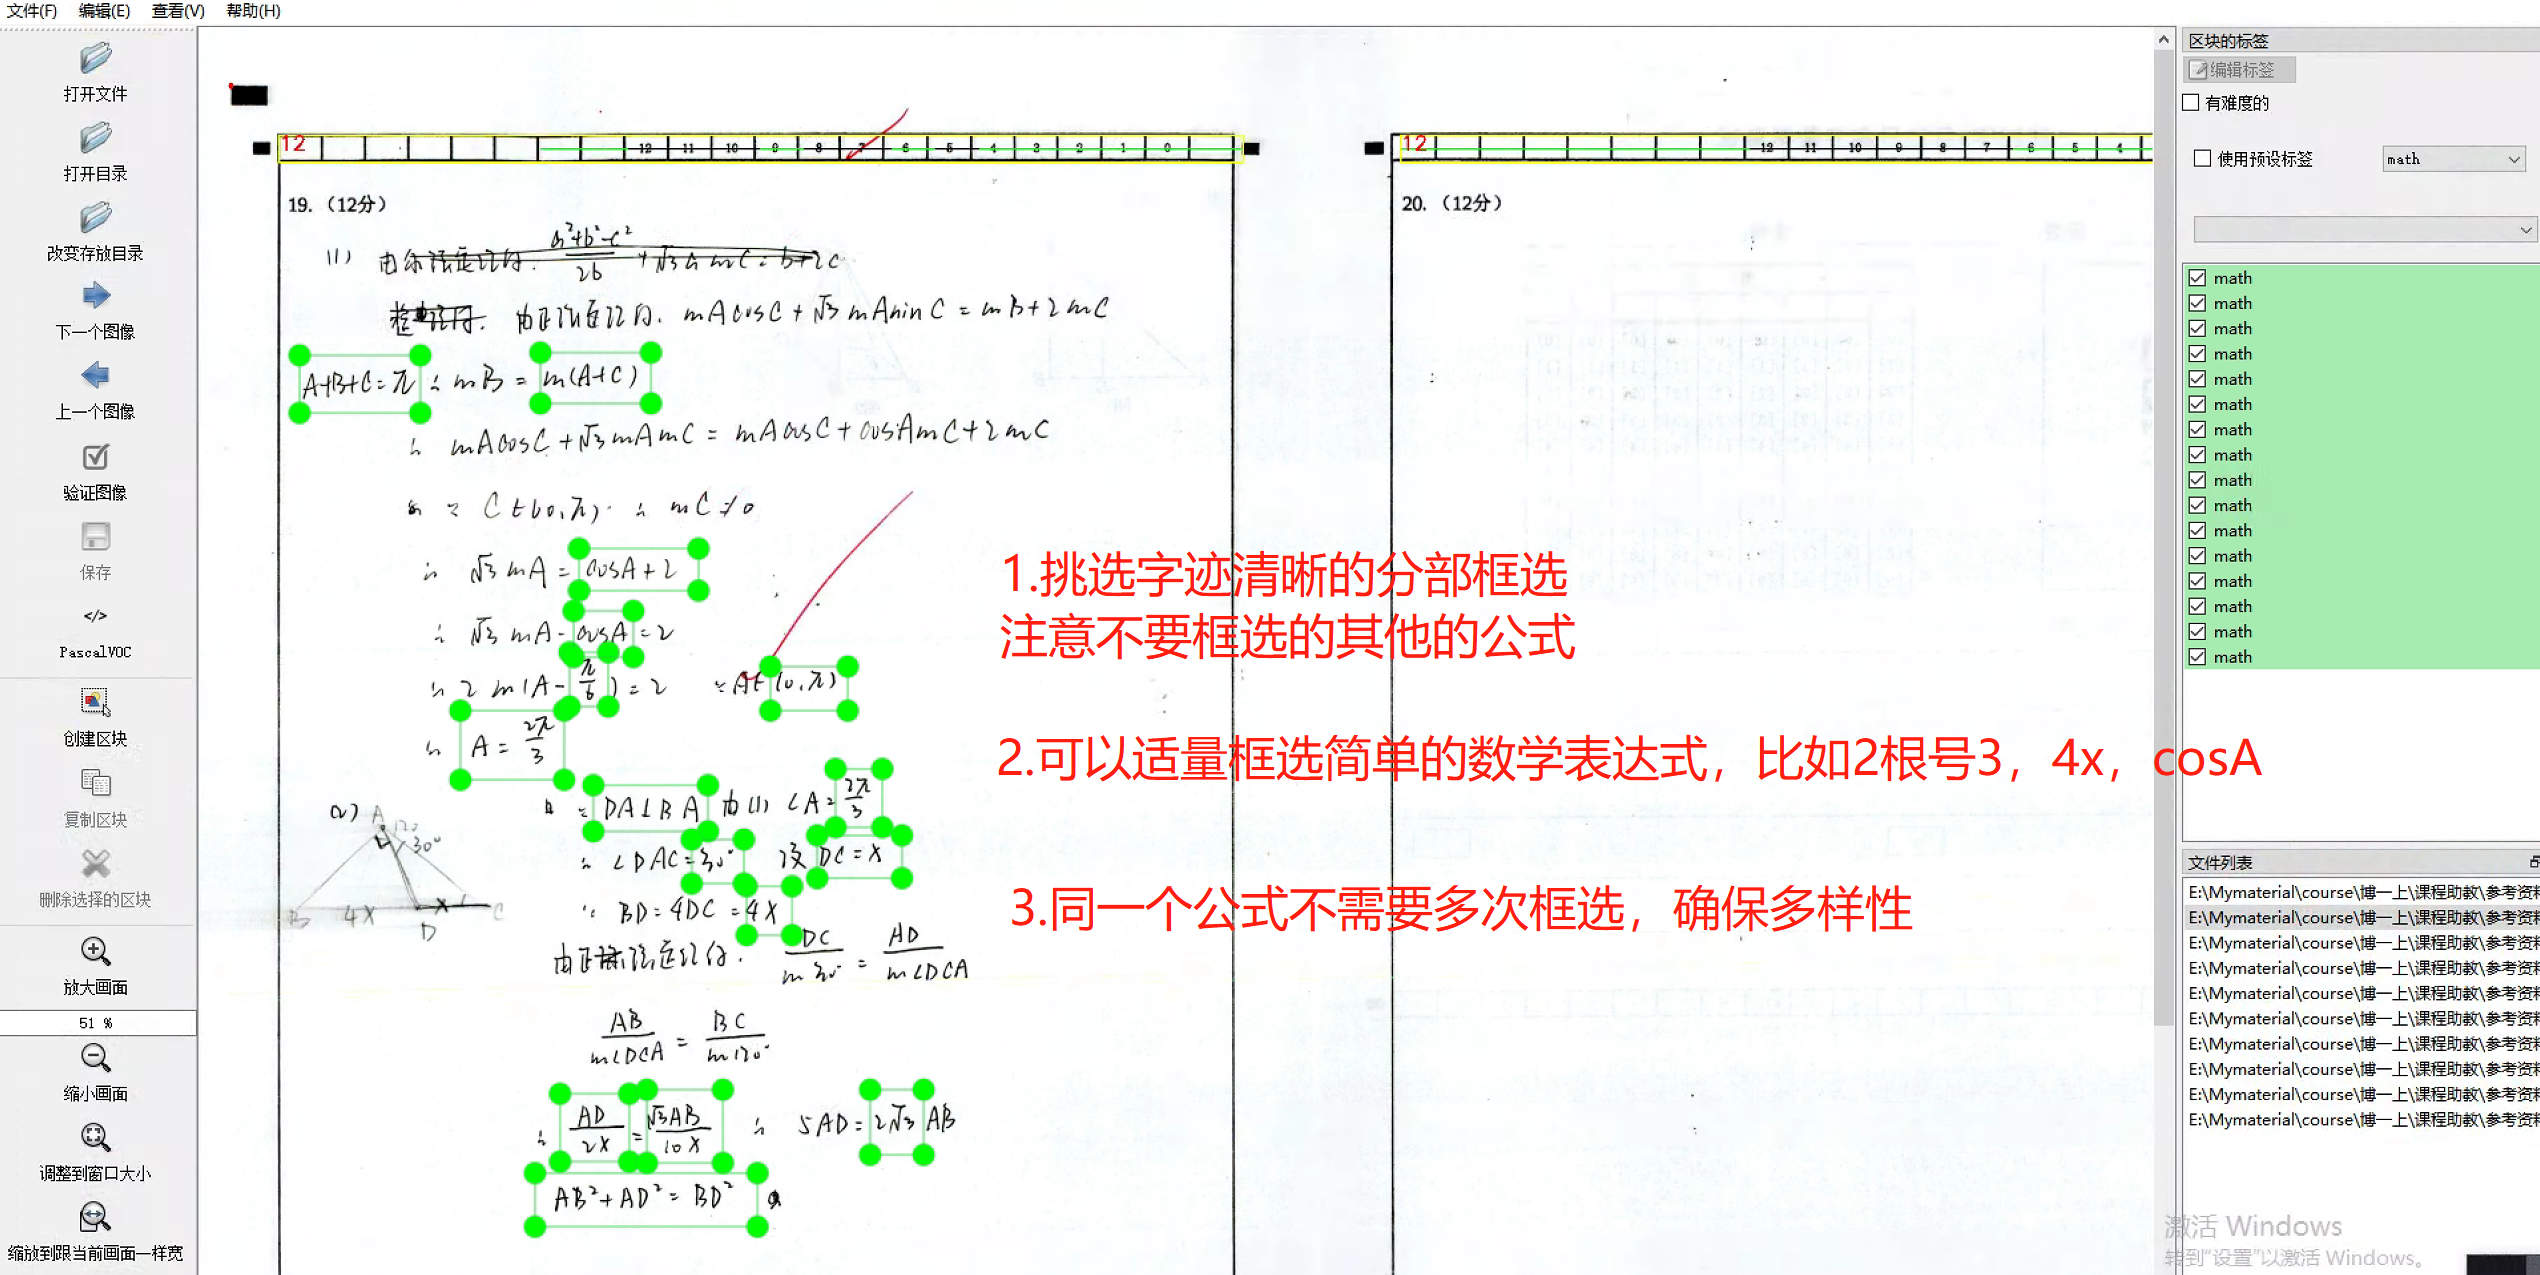 文件(F) 编辑(E) 查看(V) 帮助(H)
打开文件
打开目录
改变存放目录
下一个图像
上一个图像
验证图像
保存
</>
PascalVOC
创建区块
复制区块
删除选择的区块
放大画面
51 %
缩小画面
调整到窗口大小
缩放到跟当前画面一样宽
12 12 11 10 9 8 7 6 5 4 3 2 1 0
19.（12分）
(1) a²+b²-c²
2b
由正弦定理得. mAcosC+√3mAninC=mB+2mC
A+B+C=π ∴ mB = m(A+C)
∴ mAcosC+√3mAmC = mAcosC+cosAmC+2mC
∵ C∈(0,π) ∴ mC≠0
∴ √3mA=cosA+2
∴ √3mA-cosA=2
∴ 2m(A-π/6)=2 ∵A∈(0,π)
∴ A=2π/3
(2) A 30° B 4X D X C
∵ DA⊥BA 由(1) ∠A=2π/3
∴ ∠DAC=30° 设DC=X
∵ BD=4DC=4X
由正弦定理得. DC/m30°=AD/m∠DCA
AB/m∠DCA=BC/m120°
∴ AD/2X=√3AB/10X ∴ 5AD=2√3AB
AB²+AD²=BD²
12 12 11 10 9 8 7 6 5 4
20.（12分）
1.挑选字迹清晰的分部框选
注意不要框选的其他的公式
2.可以适量框选简单的数学表达式，比如2根号3，4x，cosA
3.同一个公式不需要多次框选，确保多样性
区块的标签
编辑标签
有难度的
使用预设标签 math
math
math
math
math
math
math
math
math
math
math
math
math
math
math
math
math
文件列表
E:\Mymaterial\course\博一上\课程助教\参考资料
E:\Mymaterial\course\博一上\课程助教\参考资料
E:\Mymaterial\course\博一上\课程助教\参考资料
E:\Mymaterial\course\博一上\课程助教\参考资料
E:\Mymaterial\course\博一上\课程助教\参考资料
E:\Mymaterial\course\博一上\课程助教\参考资料
E:\Mymaterial\course\博一上\课程助教\参考资料
E:\Mymaterial\course\博一上\课程助教\参考资料
E:\Mymaterial\course\博一上\课程助教\参考资料
E:\Mymaterial\course\博一上\课程助教\参考资料
激活 Windows
转到"设置"以激活 Windows。